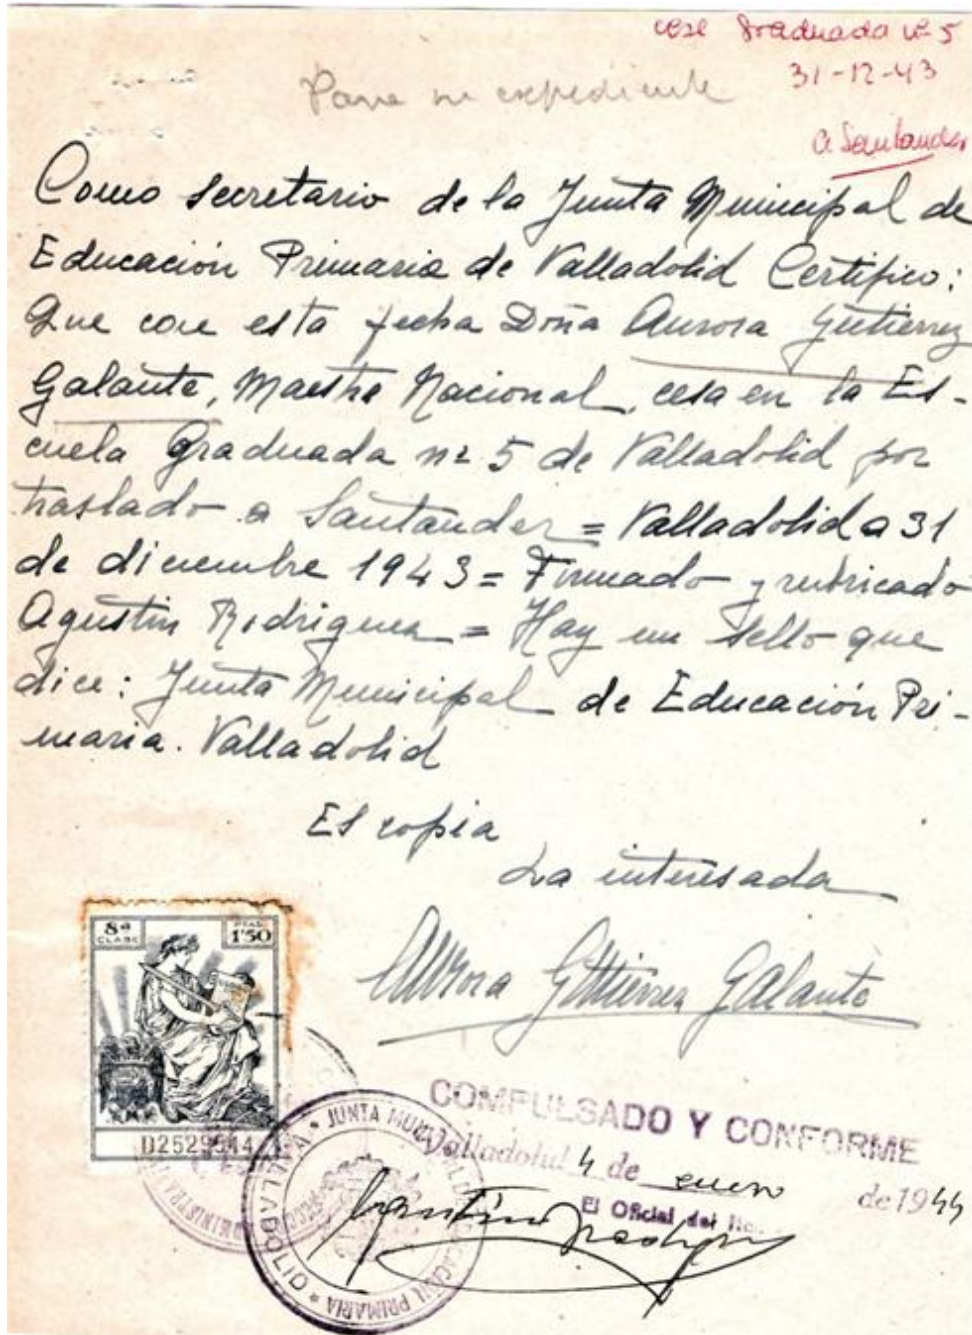 cese Graduada nº 5
31-12-43
a Santander
Para su expediente
Como secretario de la Junta Municipal de
Educación Primaria de Valladolid Certifico:
Que con esta fecha Doña Aurora Gutierrez
Galante, Maestra Nacional, cesa en la Es-
cuela Graduada nº 5 de Valladolid por
traslado a Santander = Valladolid a 31
de diciembre 1943 = Firmado y rubricado
Agustin Rodriguez = Hay un sello que
dice: Junta Municipal de Educación Pri-
maria. Valladolid
Es copia
La interesada
Aurora Gutierrez Galante
8ª CLASE
PTAS. 1'50
COMPULSADO Y CONFORME
Valladolid 4 de enero de 1944
El Oficial del
JUNTA MUNICIPAL DE EDUCACION PRIMARIA
VALLADOLID